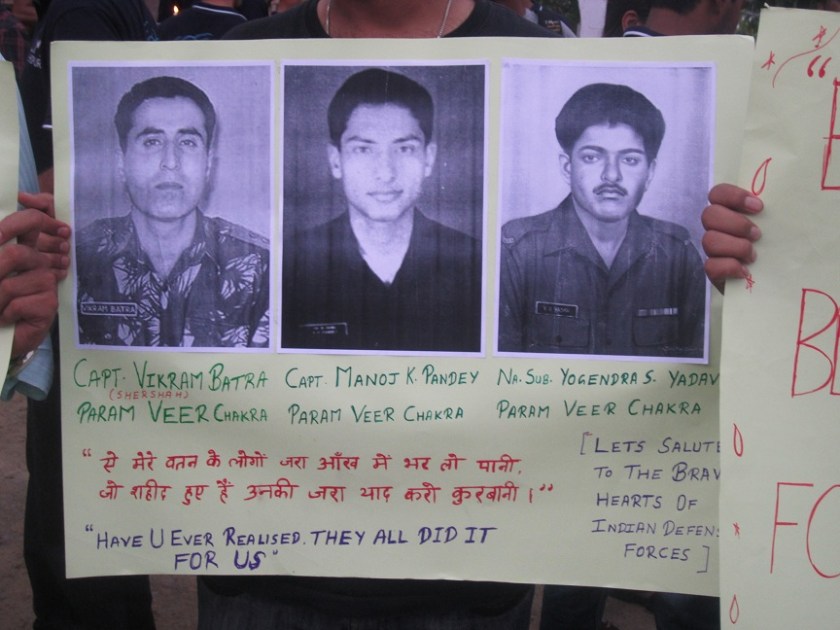 VIKRAM BATRA
CAPT. VIKRAM BATRA
(SHERSHAH)
PARAM VEER CHAKRA
CAPT. MANOJ K. PANDEY
PARAM VEER CHAKRA
NA. SUB. YOGENDRA S. YADAV
PARAM VEER CHAKRA
"से मेरे वतन के लोगों जरा आँख में भर लो पानी,
जो शहीद हुए हैं उनकी जरा याद करो कुरबानी।"
"HAVE U EVER REALISED. THEY ALL DID IT
FOR US"
[LETS SALUTE
TO THE BRAV
HEARTS OF
INDIAN DEFENS
FORCES]